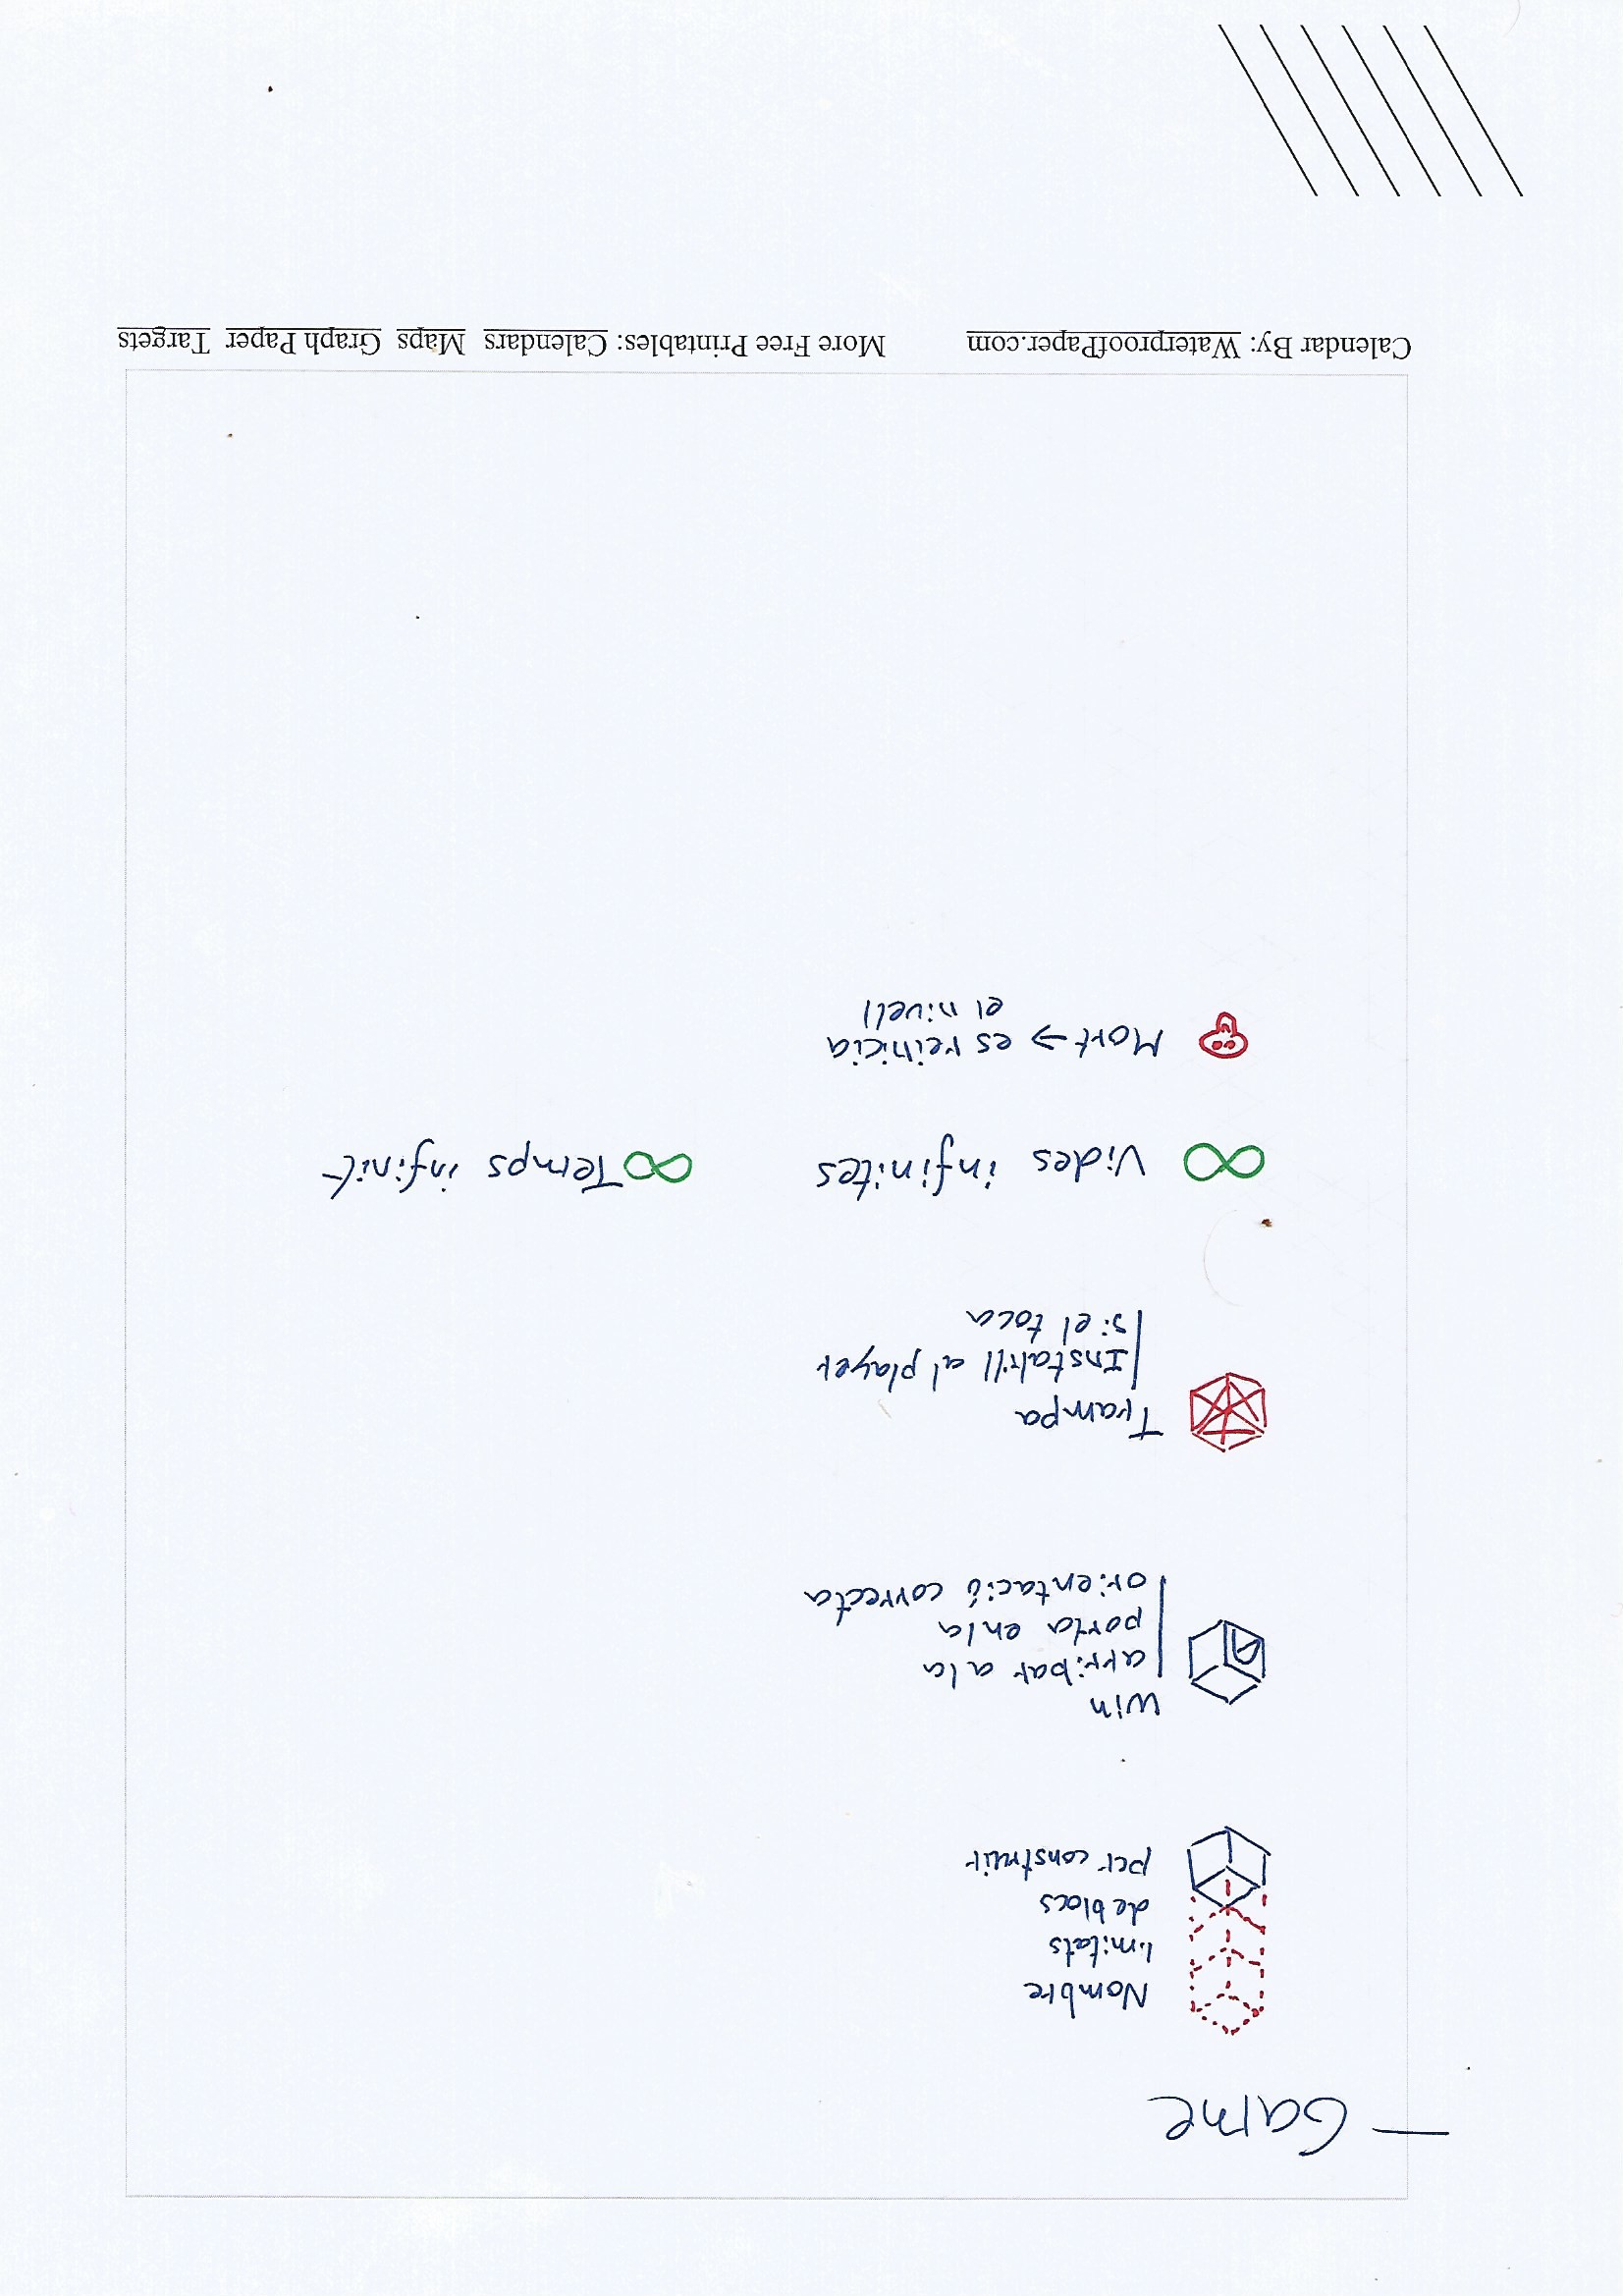 — Game
Nombre
limitats
de blocs
per construir
Win
arribar a la
porta en la
orientació correcta
Trampa
Instakill al player
si el toca
∞ Vides infinites
∞ Temps infinit
Mort → es reinicia
el nivell
Calendar By: WaterproofPaper.com
More Free Printables: Calendars Maps Graph Paper Targets